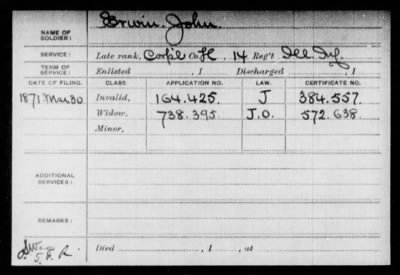 NAME OF SOLDIER: Erwin, John.
SERVICE: Late rank, Corp'l Co. H, 14 Reg't Ill. Inf.
TERM OF SERVICE: Enlisted , 1 Discharged , 1
DATE OF FILING. CLASS. APPLICATION NO. LAW. CERTIFICATE NO.
1871 Mar 30 Invalid, 164.425. J 384.557.
Widow, 738.395 J.O. 572.638
Minor,
ADDITIONAL SERVICES:
REMARKS:
S.P. R.
Died , 1 , at